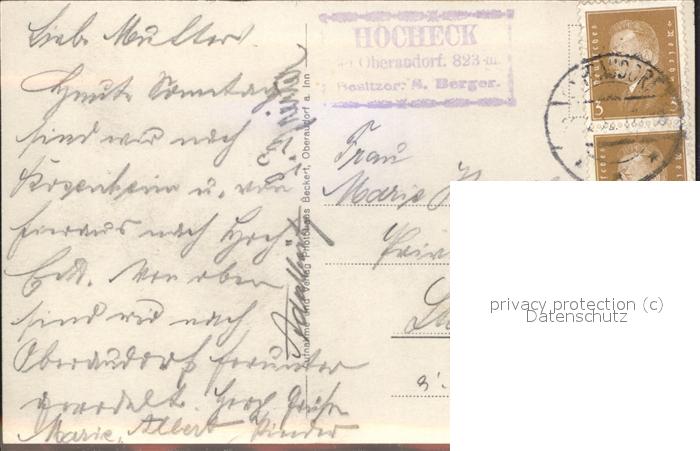 Liebe Mutter!
Heute Sonntag
sind wir nach
Rosenheim u. von
hieraus nach Hoch
Eck. Von oben
sind wir nach
Oberaudorf herunter
gerodelt. Herzl. Grüße
Marie, Albert Kinder
HOCHECK
Oberaudorf. 823 m.
Besitzer: S. Berger.
Aufnahme und Verlag Photohaus Beckert, Oberaudorf a. Inn
Frau
Marie
3
privacy protection (c)
Datenschutz